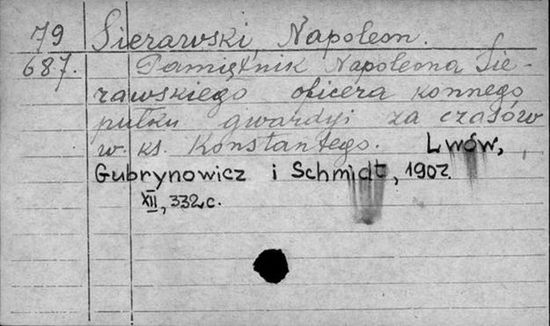 79 Sierawski, Napoleon.
687. Pamiętnik Napoleona Sie-
rawskiego oficera konnego
pułku gwardyi za czasów
w. ks. Konstantego. Lwów,
Gubrynowicz i Schmidt, 1907.
XII, 332 c.